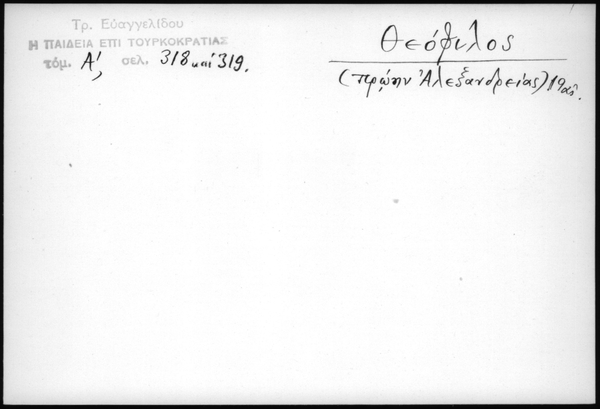 Τρ. Εὐαγγελίδου
Η ΠΑΙΔΕΙΑ ΕΠΙ ΤΟΥΡΚΟΚΡΑΤΙΑΣ
τόμ. Α', σελ. 318 καί 319.
Θεόφιλος
(πρώην Ἀλεξανδρείας) 19 αἰ.